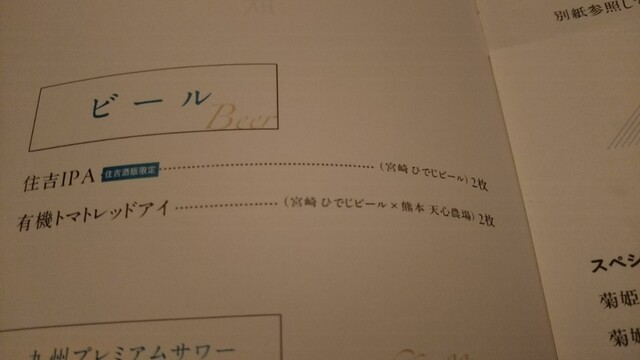 別紙参照して
ビール
Beer
住吉IPA 住吉酒販限定 (宮崎 ひでじビール) 2枚
有機トマトレッドアイ (宮崎 ひでじビール×熊本 天心農場) 2枚
九州プレミアムサワー
スペシ
菊姫
菊姫